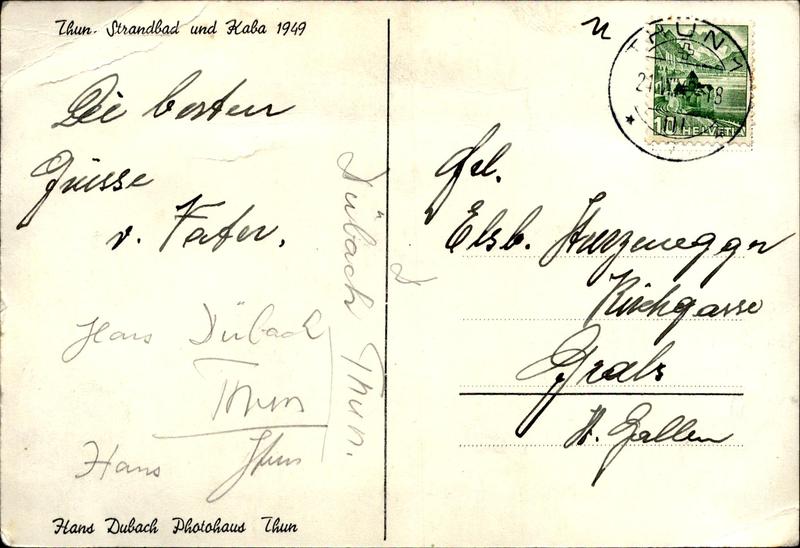 Thun. Strandbad und Kaba 1949
Die besten
Grüsse
v. Vater.
Dübach Thun.
D
Hans Dübach
Thun
Hans Thun
Hans Dubach Photohaus Thun
THUN 1
10 HELVETIA
Frl.
Elsb. Sturzenegger
Kirchgasse
Grabs
St. Gallen